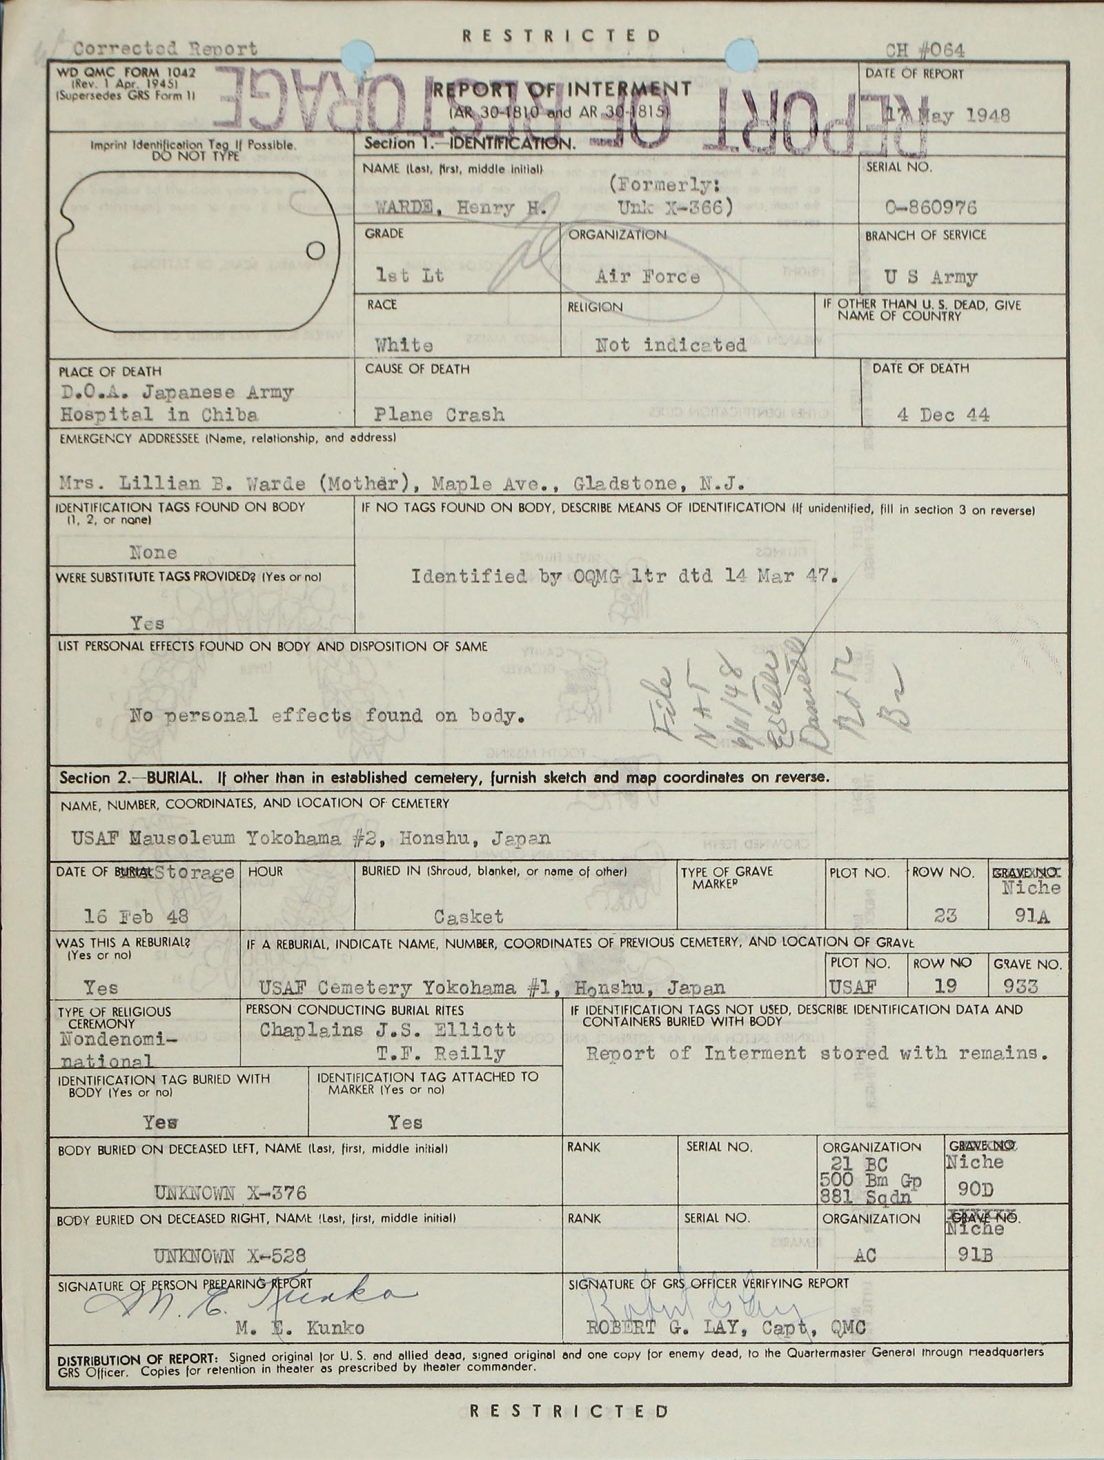 RESTRICTED
Corrected Report
CH #064
WD QMC FORM 1042
(Rev. 1 Apr. 1945)
(Supersedes GRS Form 1)
REPORT OF INTERMENT
(AR 30-1810 and AR 30-1815)
REPORT OF STORAGE
DATE OF REPORT
17 May 1948
Imprint Identification Tag If Possible.
DO NOT TYPE
Section 1.—IDENTIFICATION.
NAME (Last, first, middle initial)
(Formerly:
WARDE, Henry H. Unk X-366)
SERIAL NO.
O-860976
GRADE
1st Lt
ORGANIZATION
Air Force
BRANCH OF SERVICE
U S Army
RACE
White
RELIGION
Not indicated
IF OTHER THAN U. S. DEAD, GIVE
NAME OF COUNTRY
PLACE OF DEATH
D.O.A. Japanese Army
Hospital in Chiba
CAUSE OF DEATH
Plane Crash
DATE OF DEATH
4 Dec 44
EMERGENCY ADDRESSEE (Name, relationship, and address)
Mrs. Lillian B. Warde (Mother), Maple Ave., Gladstone, N.J.
IDENTIFICATION TAGS FOUND ON BODY
(1, 2, or none)
None
IF NO TAGS FOUND ON BODY, DESCRIBE MEANS OF IDENTIFICATION (If unidentified, fill in section 3 on reverse)
Identified by OQMG ltr dtd 14 Mar 47.
WERE SUBSTITUTE TAGS PROVIDED? (Yes or no)
Yes
LIST PERSONAL EFFECTS FOUND ON BODY AND DISPOSITION OF SAME
No personal effects found on body.
File
NAT
R&R
Br
Section 2.—BURIAL. If other than in established cemetery, furnish sketch and map coordinates on reverse.
NAME, NUMBER, COORDINATES, AND LOCATION OF CEMETERY
USAF Mausoleum Yokohama #2, Honshu, Japan
DATE OF BURIAL Storage
16 Feb 48
HOUR
BURIED IN (Shroud, blanket, or name of other)
Casket
TYPE OF GRAVE
MARKER
PLOT NO.
ROW NO.
23
GRAVE NO.
Niche
91A
WAS THIS A REBURIAL?
(Yes or no)
Yes
IF A REBURIAL, INDICATE NAME, NUMBER, COORDINATES OF PREVIOUS CEMETERY, AND LOCATION OF GRAVE
USAF Cemetery Yokohama #1, Honshu, Japan
PLOT NO.
USAF
ROW NO
19
GRAVE NO.
933
TYPE OF RELIGIOUS
CEREMONY
Nondenomi-
national
PERSON CONDUCTING BURIAL RITES
Chaplains J.S. Elliott
T.F. Reilly
IF IDENTIFICATION TAGS NOT USED, DESCRIBE IDENTIFICATION DATA AND
CONTAINERS BURIED WITH BODY
Report of Interment stored with remains.
IDENTIFICATION TAG BURIED WITH
BODY (Yes or no)
Yes
IDENTIFICATION TAG ATTACHED TO
MARKER (Yes or no)
Yes
BODY BURIED ON DECEASED LEFT, NAME (Last, first, middle initial)
UNKNOWN X-376
RANK
SERIAL NO.
ORGANIZATION
21 BC
500 Bm Gp
881 Sqdn
GRAVE NO.
Niche
90D
BODY BURIED ON DECEASED RIGHT, NAME (Last, first, middle initial)
UNKNOWN X-528
RANK
SERIAL NO.
ORGANIZATION
AC
GRAVE NO.
Niche
91B
SIGNATURE OF PERSON PREPARING REPORT
M. E. Kunko
M. E. Kunko
SIGNATURE OF GRS OFFICER VERIFYING REPORT
Robert G Lay
ROBERT G. LAY, Capt, QMC
DISTRIBUTION OF REPORT: Signed original for U. S. and allied dead, signed original and one copy for enemy dead, to the Quartermaster General through Headquarters
GRS Officer. Copies for retention in theater as prescribed by theater commander.
RESTRICTED